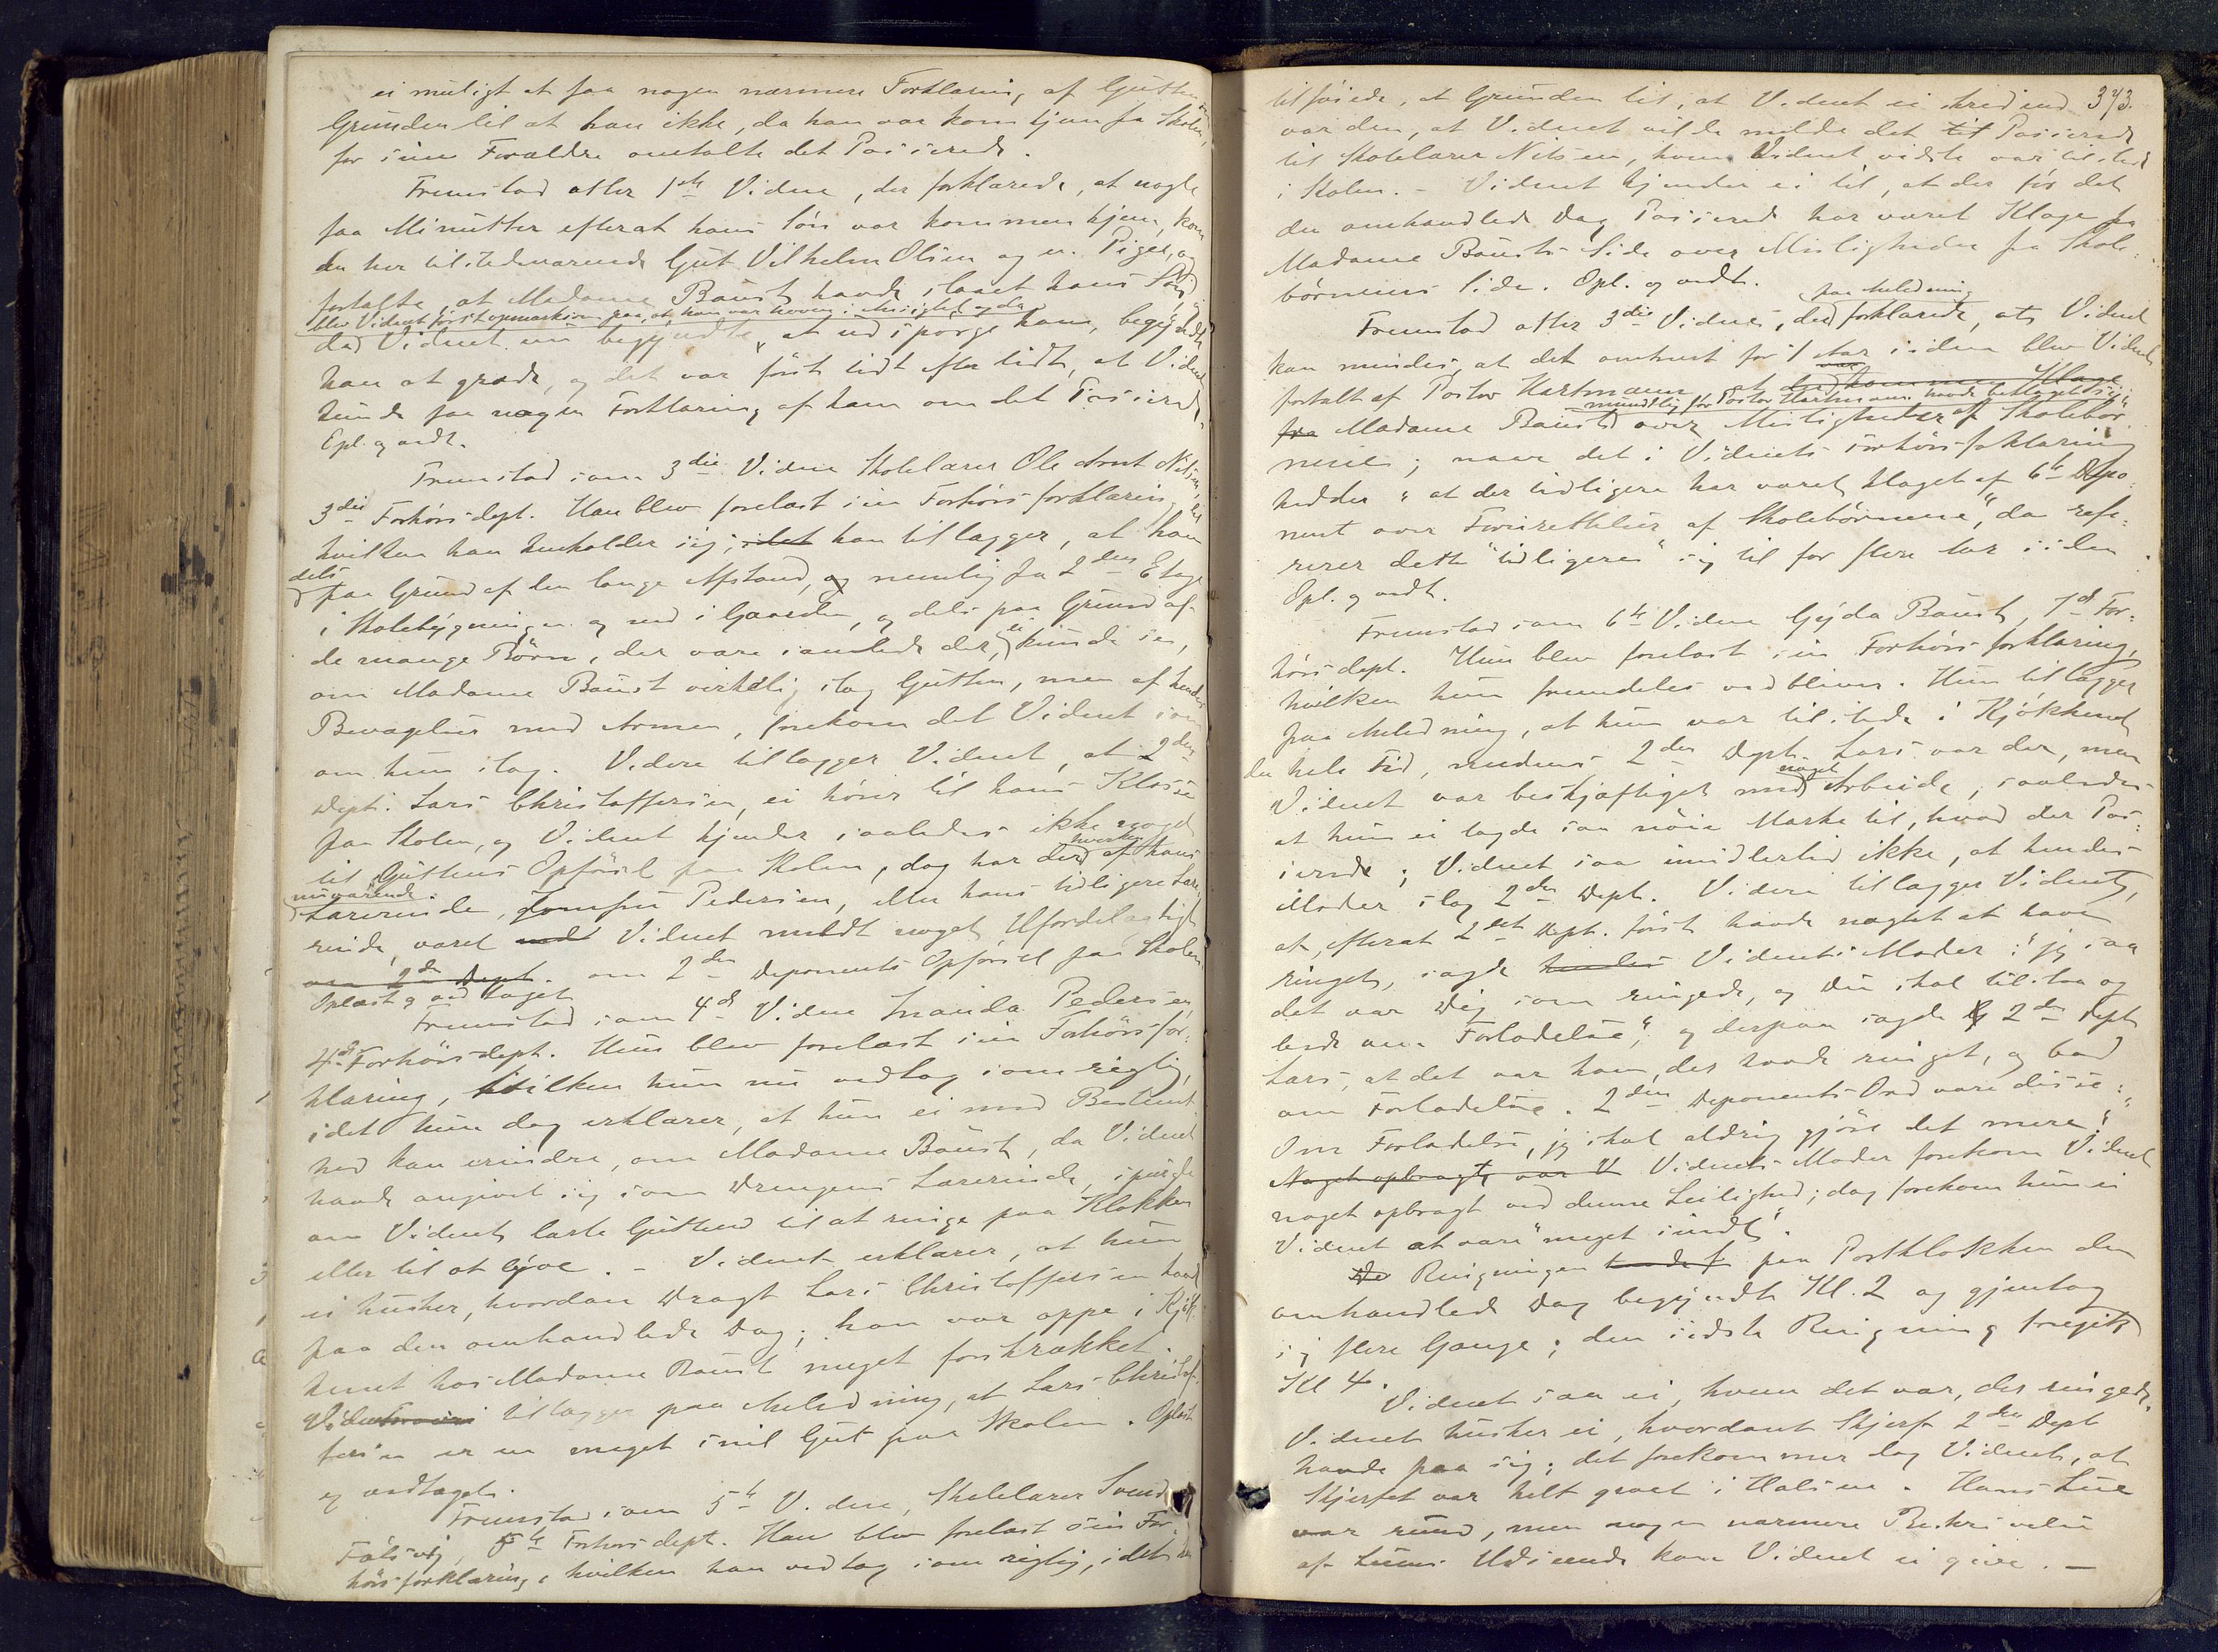 ei muligt at faa nogen nærmere Forklaring af Gutten om
Grunden til at han ikke, da han var kom hjem fra Skolen,
for sine Forældre omtalte det Passerede.
Fremstod atter 1ste Vidne, der forklarede, at nogle
faa Minutter efterat hans Søn var kommen hjem, kom
den her tilstedeværende Gut Vilhelm Olsen og en Pige, og
fortalte, at Madame Baust havde slaaet hans Søn;
blev Vidnet først opmærksom paa, at han var hoven i Ansigtet, og da
da Vidnet nu begyndte at udspørge ham, begyndte
han at græde, og det var først lidt efter lidt, at Vidnet
kunde faa nogen Forklaring af ham om det Passerede.
Opl. og vedt.
Fremstod som 3die Vidne Skolelærer Ole Arnt Nilsen,
3die Forhørsdept. Han blev forelæst sin Forhørsforklaring, til
hvilken han henholder sig, idet han tillægger, at han
dels
paa Grund af den lange Afstand, og nemlig fra 2den Etage
i Skolebygningen og ned i Gaarden, og dels paa Grund af
de mange Børn, der vare samlede der, ei kunde se,
om Madame Baust virkelig slog Gutten, men af hendes
Bevægelser med Armen, forekom det Vidnet som
om hun slog. Videre tillægger Vidnet, at 2den
Dept. Lars Christoffersen, ei hører til hans Klasse
paa Skolen, og Vidnet kjender saaledes ikke noget
til Guttens Opførsel paa Skolen, dog har der hverken af hans
nuværende
Lærerinde, Jomfru Pedersen, eller hans tidligere Lære-
rinde, været Vidnet meldt noget Ufordelagtigt
om 2den Dept. om 2den Deponents Opførsel paa Skolen
Oplæst og vedtaget
Fremstod som 4de Vidne Pedersen,
4de Forhørsdept. Hun blev forelæst sin Forhørsfor-
klaring, hvilken hun nu vedtog som rigtig,
idet hun dog erklærer, at hun ei med Bestemt-
hed kan erindre, om Madame Baust, da Vidnet
havde angivet sig som Drengens Lærerinde, spurgte
om Vidnet lærte Gutten til at ringe paa Klokken
eller til at lyve. – Vidnet erklærer, at hun
ei husker, hvordan Dragt Lars Christoffersen havde
paa den omhandlede Dag; han var oppe i Kjøk-
kenet hos Madame Baust meget forskrækket.
Vidnet tillægger paa Anledning, at Lars Christof-
fersen er en meget snil Gut paa Skolen. Oplæst
og vedtaget.
Fremstod som 5te Vidne, Skolelærer Svend
Forhørsdept. Han blev forelæst sin For-
hørsforklaring, hvilken han vedtog som rigtig, idet han
373.
tilføiede, at Grunden til, at Vidnet ei skred ind
var den, at Vidnet vilde melde det til Passerede
til Skolelærer Nilsen, hvem Vidnet vidste var tilstede
i Skolen. – Vidnet kjender ei til, at der før det
den omhandlede Dag Passerede har været Klage fra
Madame Bausts Side over Misligheder fra Skole-
børnenes Side. Opl. og vedt.
paa Anledning
Fremstod atter 3die Vidne, der forklarede, at Vidnet
kan mindes, at det omtrent for 1 Aar siden blev Vidnet
fortalt af Pastor Hartmann at der var kommen Klage
mundtlig for Pastor Hartmann havde beklaget sig
fra Madame Baust over Misligheder af Skolebør-
nene; naar det i Vidnets Forhørsforklaring
hedder "at der tidligere har været klaget af 6te Depo-
nent over Fornærmelser af Skolebørnene", da refe-
rerer dette "tidligere" sig til for flere Aar siden.
Opl. og vedt.
Fremstod som 6te Vidne Gyda Baust, 7de For-
hørsdept. Hun blev forelæst sin Forhørsforklaring,
hvilken hun fremdeles vedbliver. Hun tillægger
paa Anledning, at hun var tilstede i Kjøkkenet
den hele Tid, medens 2den Dept. Lars var der, men
Vidnet var beskjæftiget med noget Arbeide, saaledes
at hun ei lagde saa nøie Mærke til, hvad der Pas-
serede; Vidnet saa imidlertid ikke, at hendes
Moder slog 2den Dept. Videre tillægger Vidnet,
at, efterat 2den Dept. først havde nægtet at have
ringet, sagde hendes Vidnets Moder: "jeg saa
det var Dig som ringede, og Du skal tilstaa og
bede om Forladelse", og derpaa sagde 2den Dept.
Lars, at det var ham, der havde ringet, og bad
om Forladelse. 2den Deponents Ord vare disse:
"Om Forladelse, jeg skal aldrig gjøre det mere."
Noget opbragt var V Vidnets Moder forekom Vidnet
noget opbragt ved denne Leilighed; dog forekom hun ei
Vidnet at være "meget sindt".
De Ringningen paa Portklokken den
omhandlede Dag begyndte Kl. 2 og gjentog
sig flere Gange; den sidste Ringning foregik
Kl 4.
Vidnet saa ei, hvem det var, der ringede.
Vidnet husker ei, hvordant Skjerf 2den Dept
havde paa sig; det forekommer dog Vidnet, at
Skjerfet var helt graat i Halsen. Hans Lue
var rund, men nogen nærmere Beskrivelse
af Luens Udseende kan Vidnet ei give. –